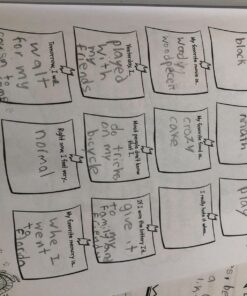 black
math
play
My favorite movie is..
woody
woodpecker
My favorite food is..
crazy
cake
I really hate it when
Yesterday, I
played
with
my
friends
Most people don't know
that I..
do tricks
on my
bicycle
If I won the lottery I'd..
give it
to my
family and
friends
Tomorrow, I will
wait
for my
Right now, I feel very..
normal
My favorite memory is..
whe I
went
to
Florda